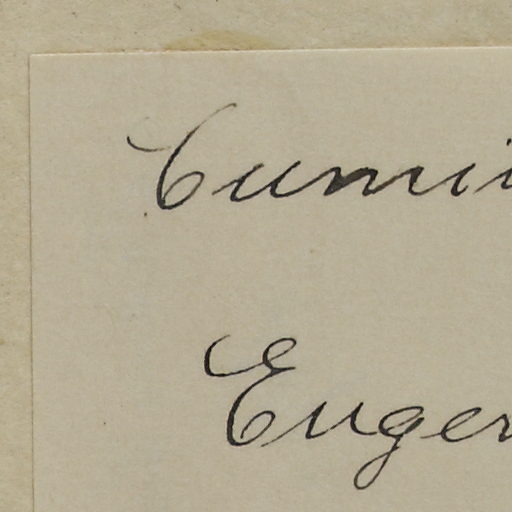 Cummi
Eugen